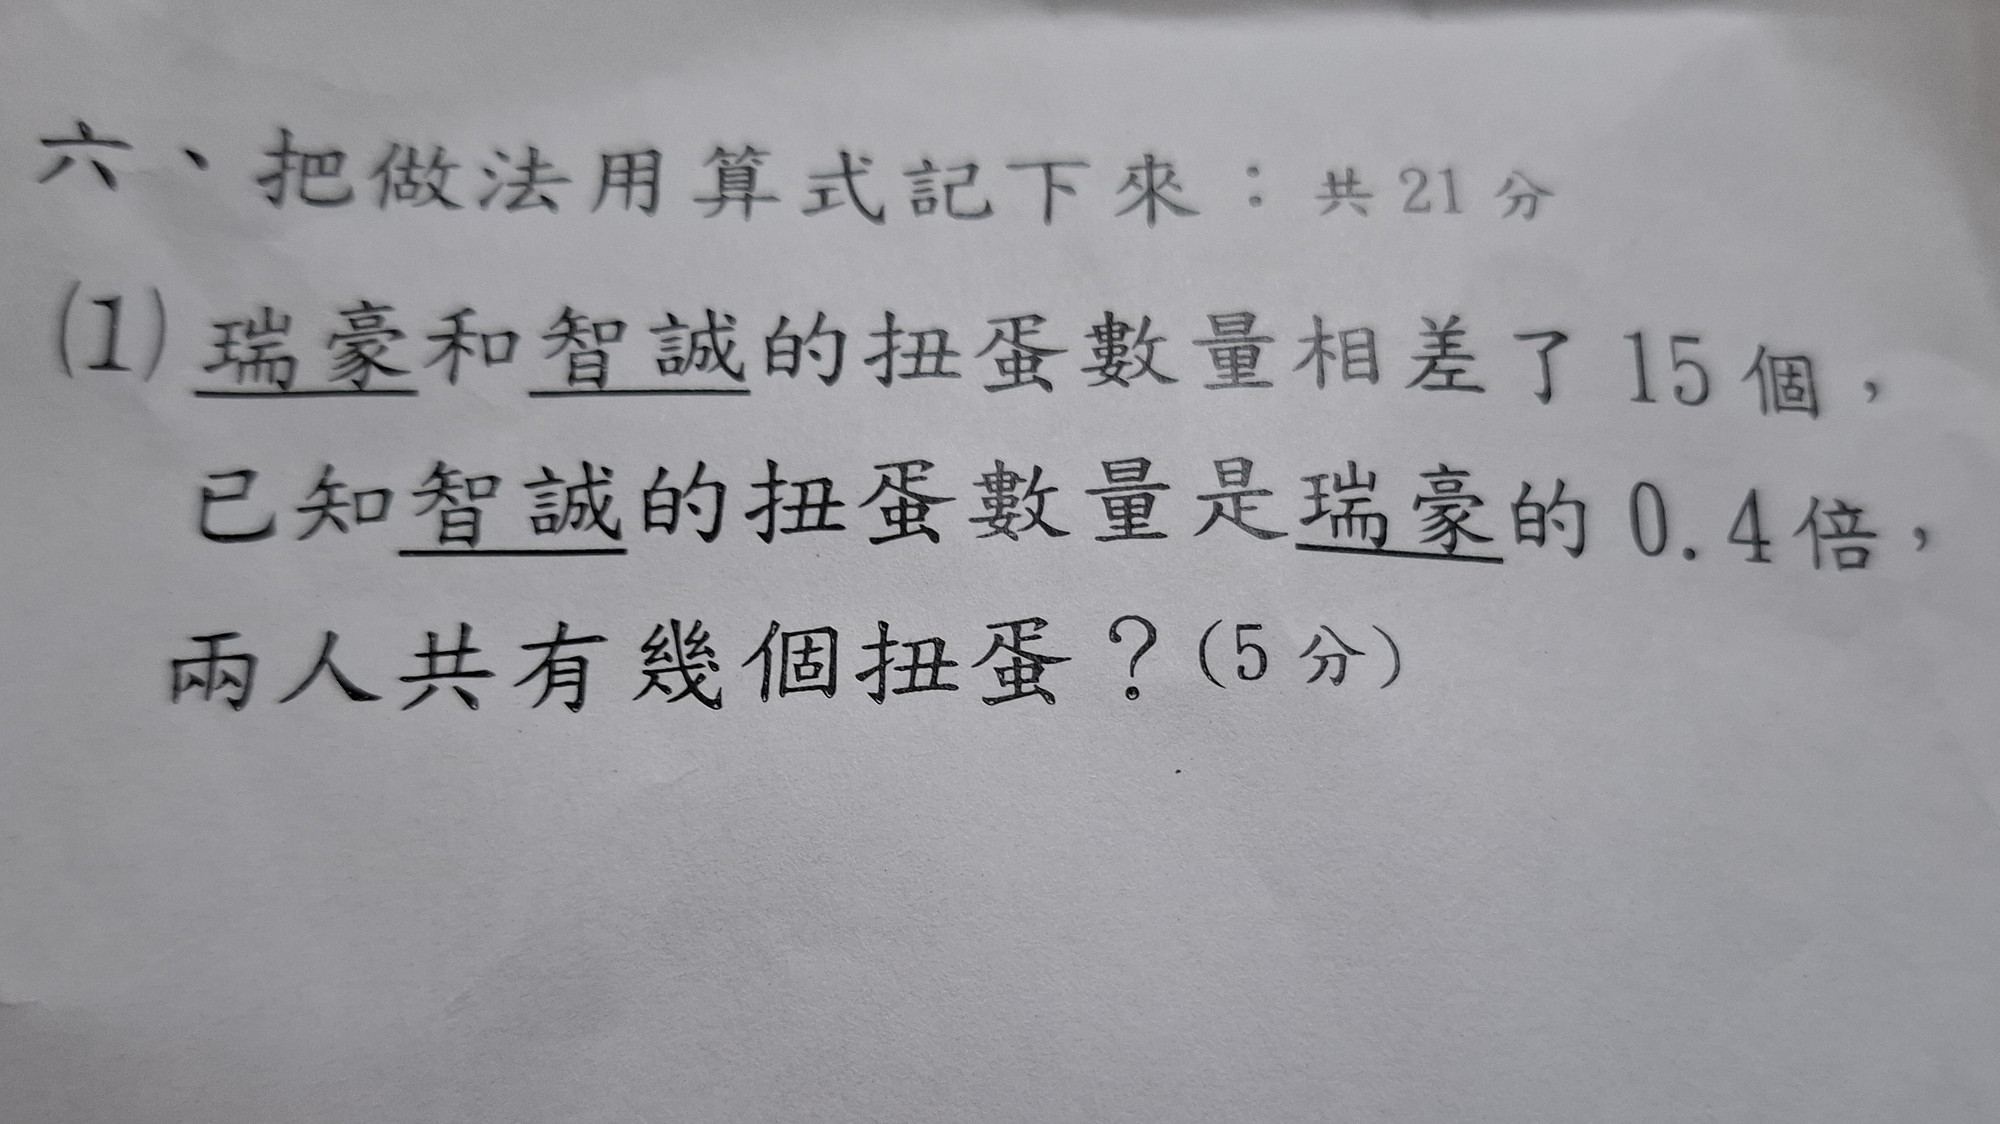 六、把做法用算式記下來：共 21 分
(1) 瑞豪和智誠的扭蛋數量相差了 15 個，
已知智誠的扭蛋數量是瑞豪的 0.4 倍，
兩人共有幾個扭蛋？(5 分)